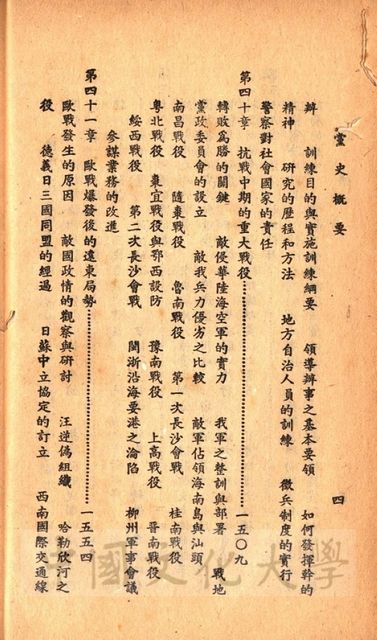 黨史概要　　四
辦　訓練目的與實施訓練綱要　領導辦事之基本要領　如何發揮幹的
精神　研究的歷程和方法　地方自治人員的訓練　徵兵制度的實行
警察對社會國家的責任
第四十章　抗戰中期的重大戰役…………一五〇九
轉敗爲勝的關鍵　敵侵華陸海空軍的實力　我軍之整訓與部署　戰地
黨政委員會的設立　敵我兵力優劣之比較　敵軍佔領海南島與汕頭
南昌戰役　隨棗戰役　魯南戰役　第一次長沙會戰　桂南戰役
粵北戰役　棗宜戰役與鄂西設防　豫南戰役　上高戰役　晉南戰役
綏西戰役　第二次長沙會戰　閩浙沿海要港之淪陷　柳州軍事會議
參謀業務的改進
第四十一章　歐戰爆發後的遠東局勢…………一五五四
歐戰發生的原因　敵國政情的觀察與研討　汪逆僞組織　哈勒欣河之
役　德義日三國同盟的經過　日蘇中立協定的訂立　西南國際交通線
中國文化大學